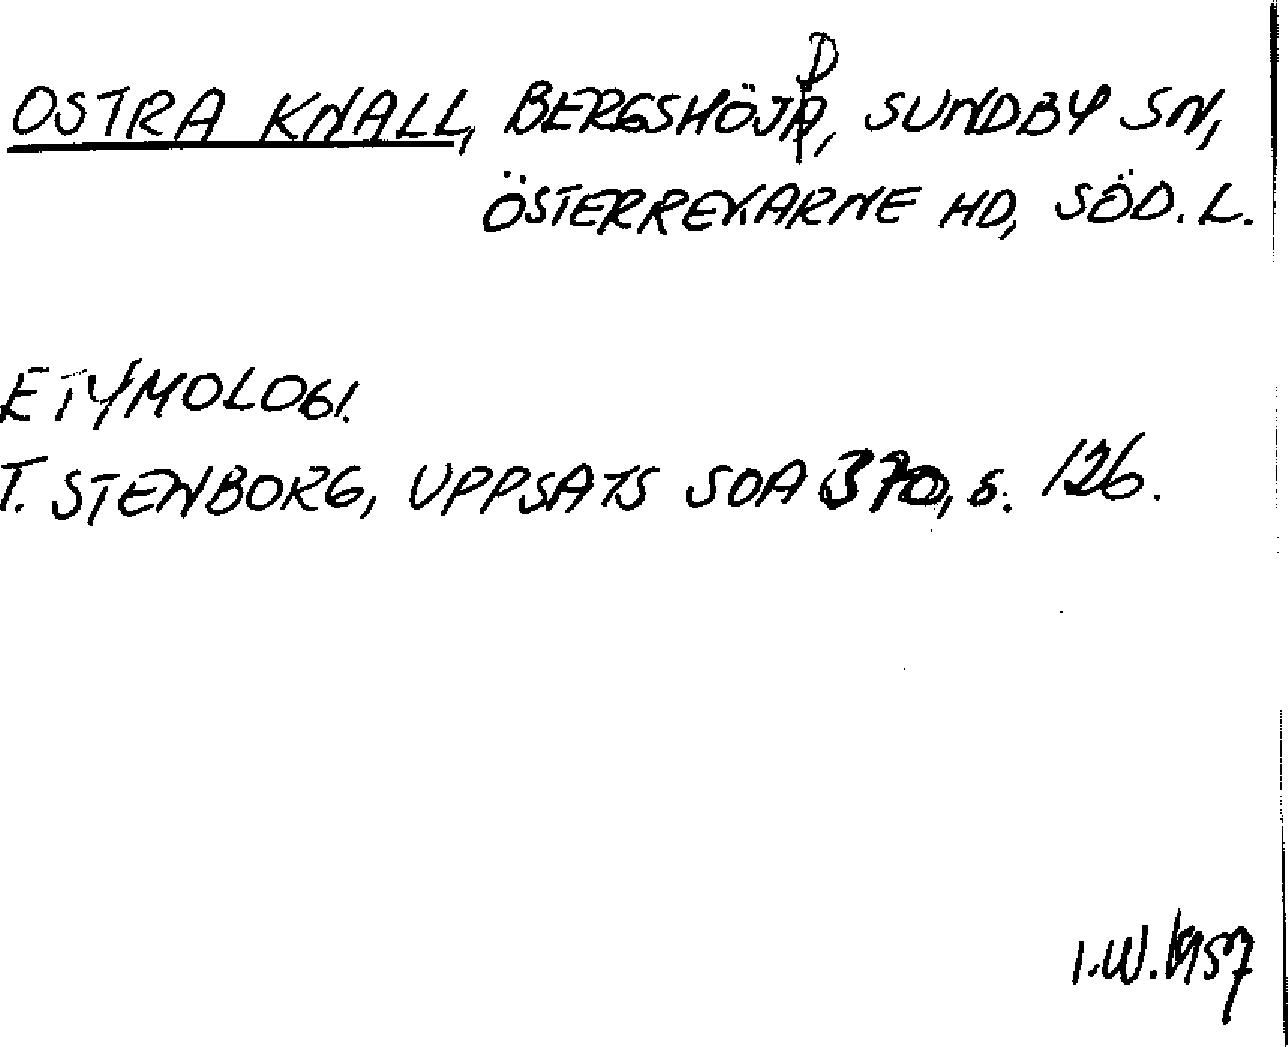 OSTRA KNALL, BERGSHÖJD, SUNDBY SN,
ÖSTERREKARNE HD, SÖD. L.
ETYMOLOGI.
T. STENBORG, UPPSATS SOA 370, s. 126.
I.W. 1957